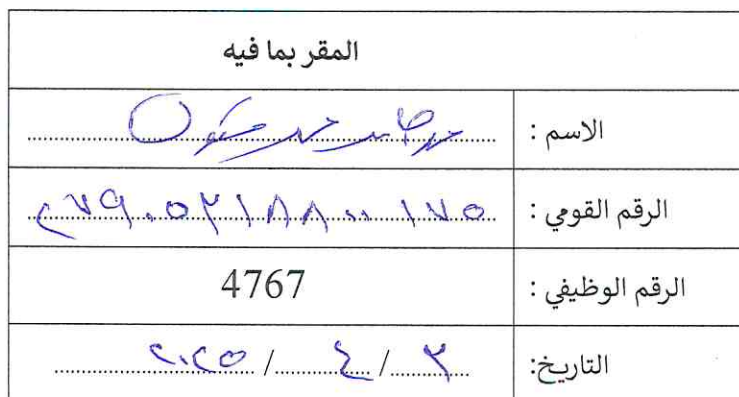 المقر بما فيه
الاسم :
الرقم القومي : ٢٧٩٠٥٣١٨٨٠٠١٧٥
الرقم الوظيفي : 4767
التاريخ: ٣ / ٤ / ٢٠٢٥